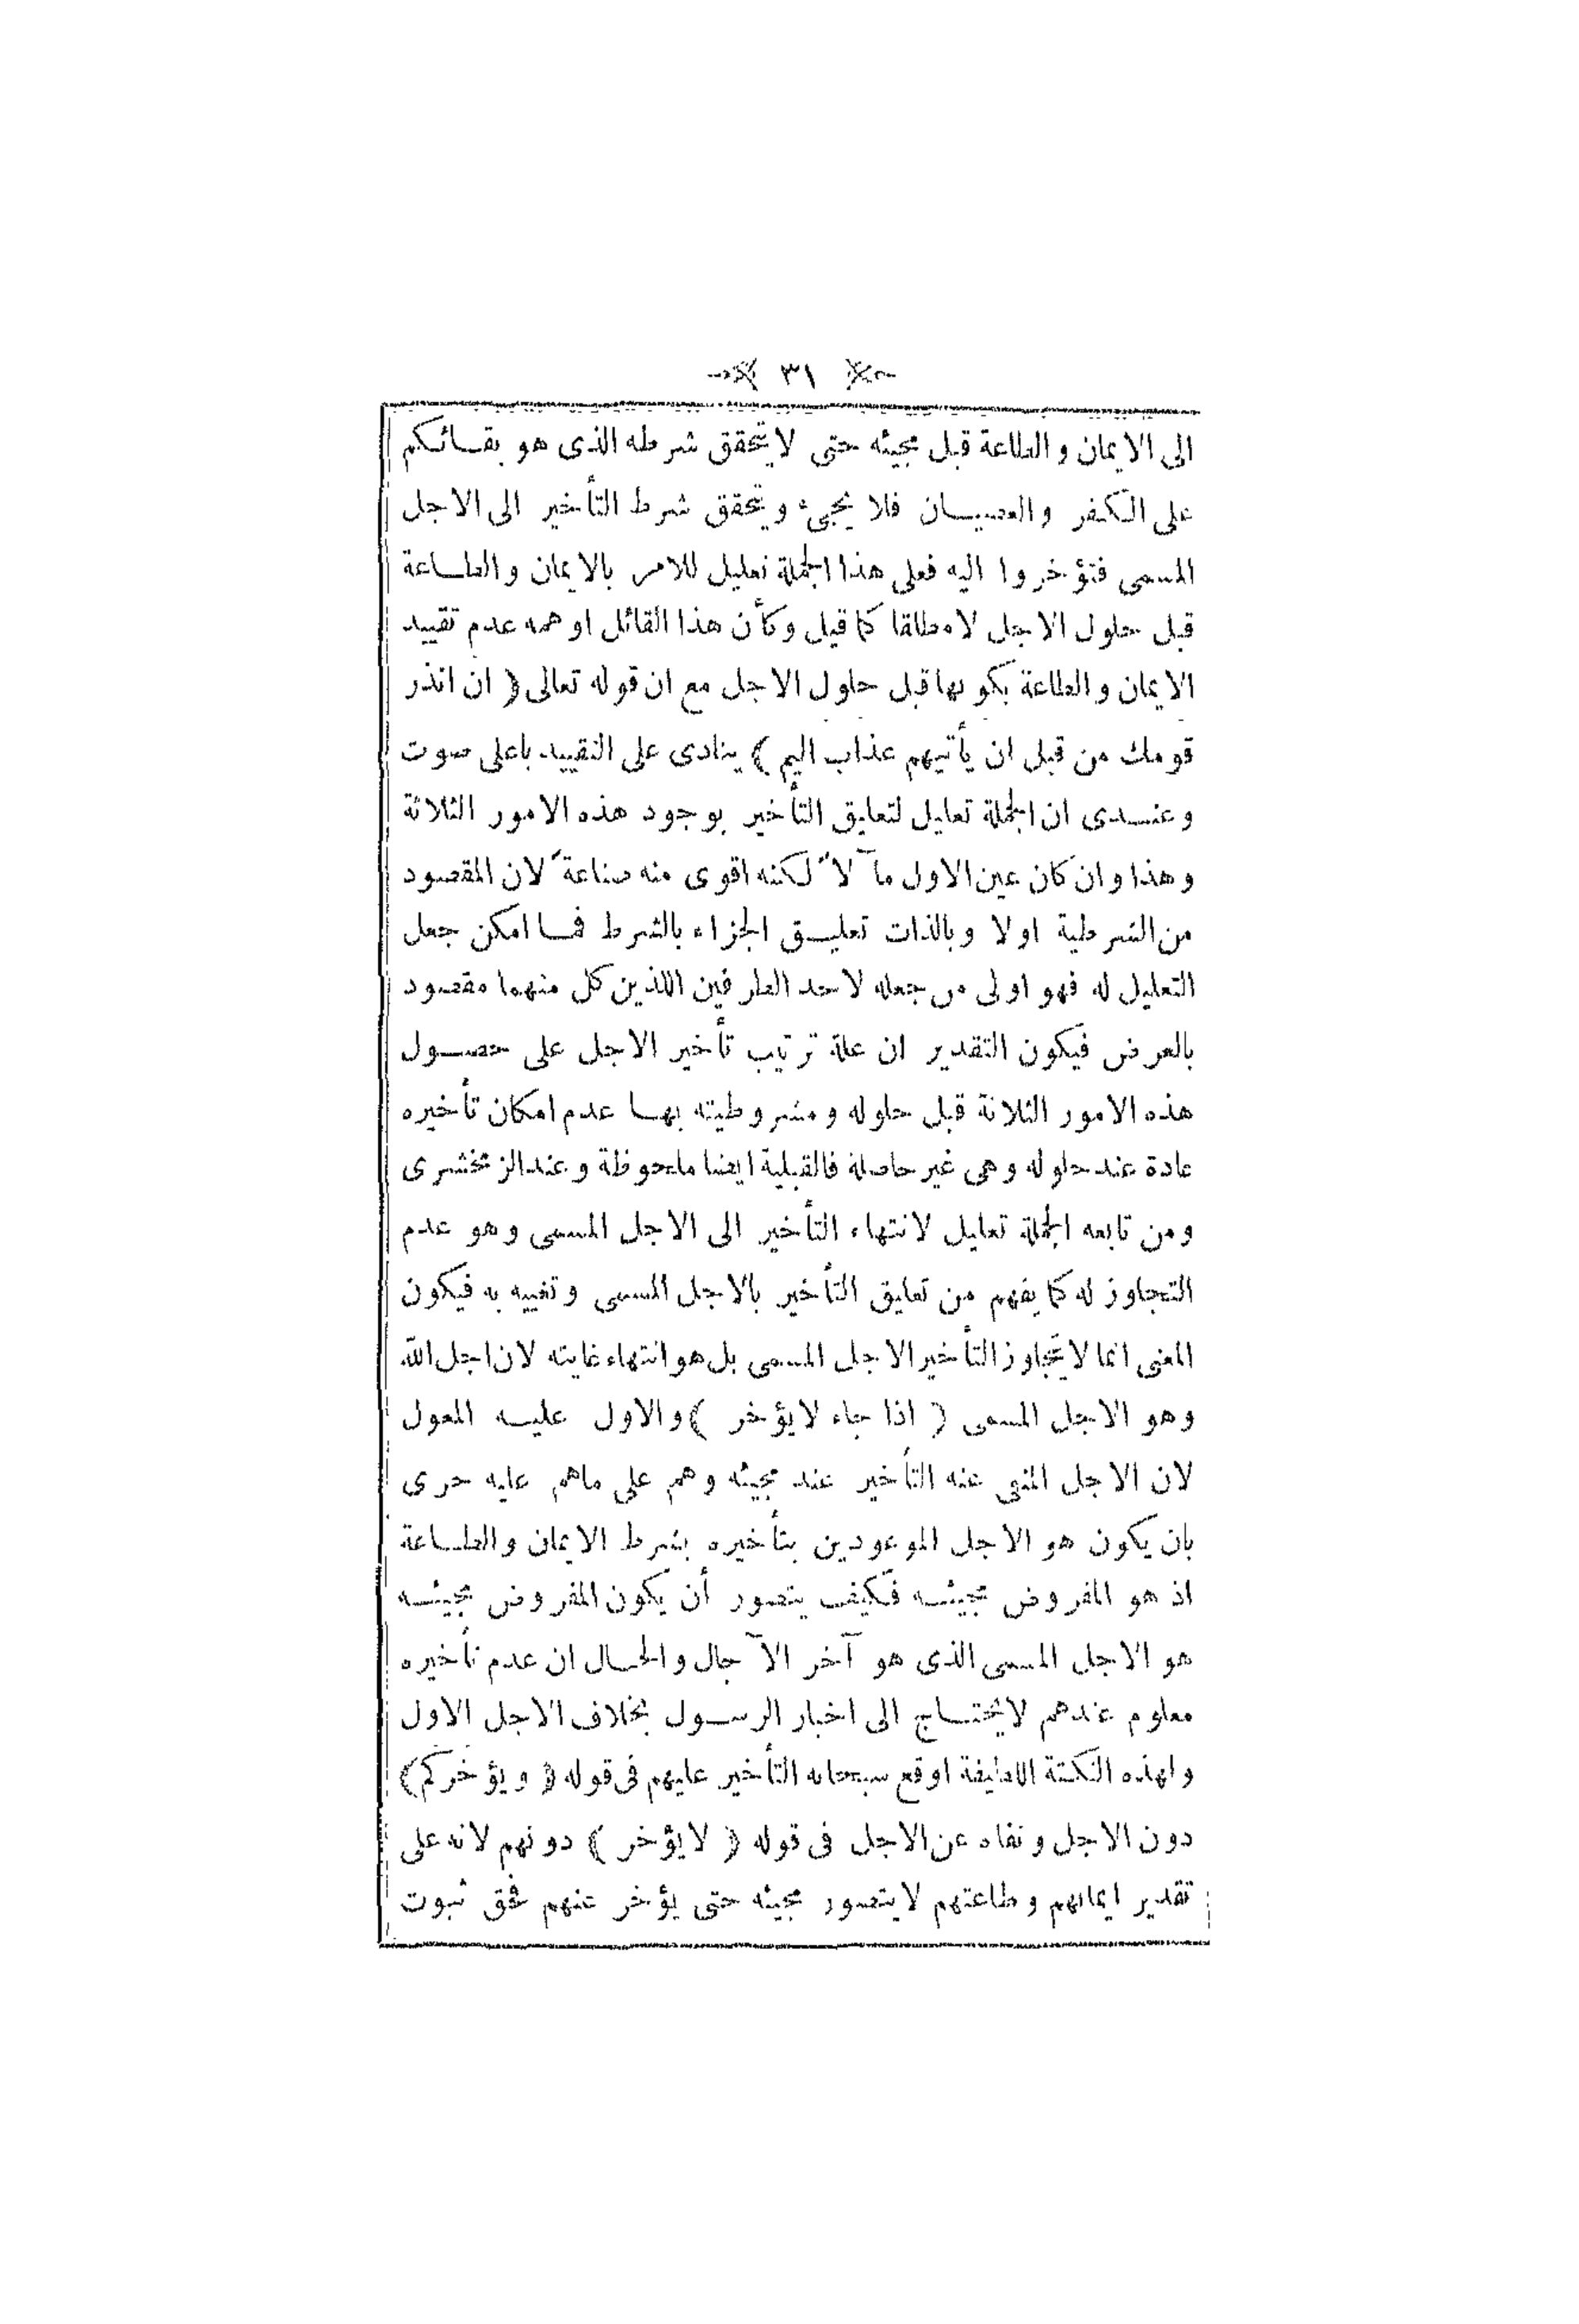 ٣١
الى الايمان والطاعة قبل مجيئه حتى لايتحقق شرطه الذى هو بقــائــكم
على الكفر والعصيــان فلا يجىء ويتحقق شرط التأخير الى الاجل
المسمى فتؤخروا اليه فعلى هذا الجملة تعليل للامر بالايمان والطــاعة
قبل حلول الاجل لامطلقا كما قيل وكأن هذا القائل اوهمه عدم تقييد
الايمان والطاعة بكونهاقبل حلول الاجل مع ان قوله تعالى ( ان انذر
قومك من قبل ان يأتيهم عذاب اليم ) ينادى على التقييد باعلى صوت
وعنــدى ان الجملة تعليل لتعليق التأخير بوجود هذه الامور الثلاثة
وهذا وان كان عين الاول مآلاً لكنه اقوى منه صناعةً لان المقصود
من الشرطية اولا وبالذات تعليــق الجزاء بالشرط فمــا امكن جعل
التعليل له فهو اولى من جعله لاحد الطرفين اللذين كل منهما مقصود
بالعرض فيكون التقدير ان علة ترتيب تأخير الاجل على حصــول
هذه الامور الثلاثة قبل حلوله ومشروطيته بهــا عدم امكان تأخيره
عادة عند حلوله وهى غير حاصلة فالقبلية ايضا ملحوظة وعند الزمخشرى
ومن تابعه الجملة تعليل لانتهاء التأخير الى الاجل المسمى وهو عدم
التجاوز له كما يفهم من تعليق التأخير بالاجل المسمى وتغييه به فيكون
المعنى انما لايتجاوز التأخير الاجل المسمى بل هو انتهاء غايته لان اجل الله
وهو الاجل المسمى ( اذا جاء لايؤخر ) والاول عليــه المعول
لان الاجل المنفى عنه التأخير عند مجيئه وهم على ماهم عليه حرى
بان يكون هو الاجل الموعودين بتأخيره بشرط الايمان والطــاعة
اذ هو المفروض مجيئــه فكيف يتصور أن يكون المفروض مجيئــه
هو الاجل المسمى الذى هو آخر الآجال والحــال ان عدم تأخيره
معلوم عندهم لايحتــاج الى اخبار الرســول بخلاف الاجل الاول
ولهذه النكتة اللطيفة اوقع سبحانه التأخير عليهم فى قوله ( ويؤخركم )
دون الاجل ونفاه عن الاجل فى قوله ( لايؤخر ) دونهم لانه على
تقدير ايمانهم وطاعتهم لايتصور مجيئه حتى يؤخر عنهم فحق ثبوت